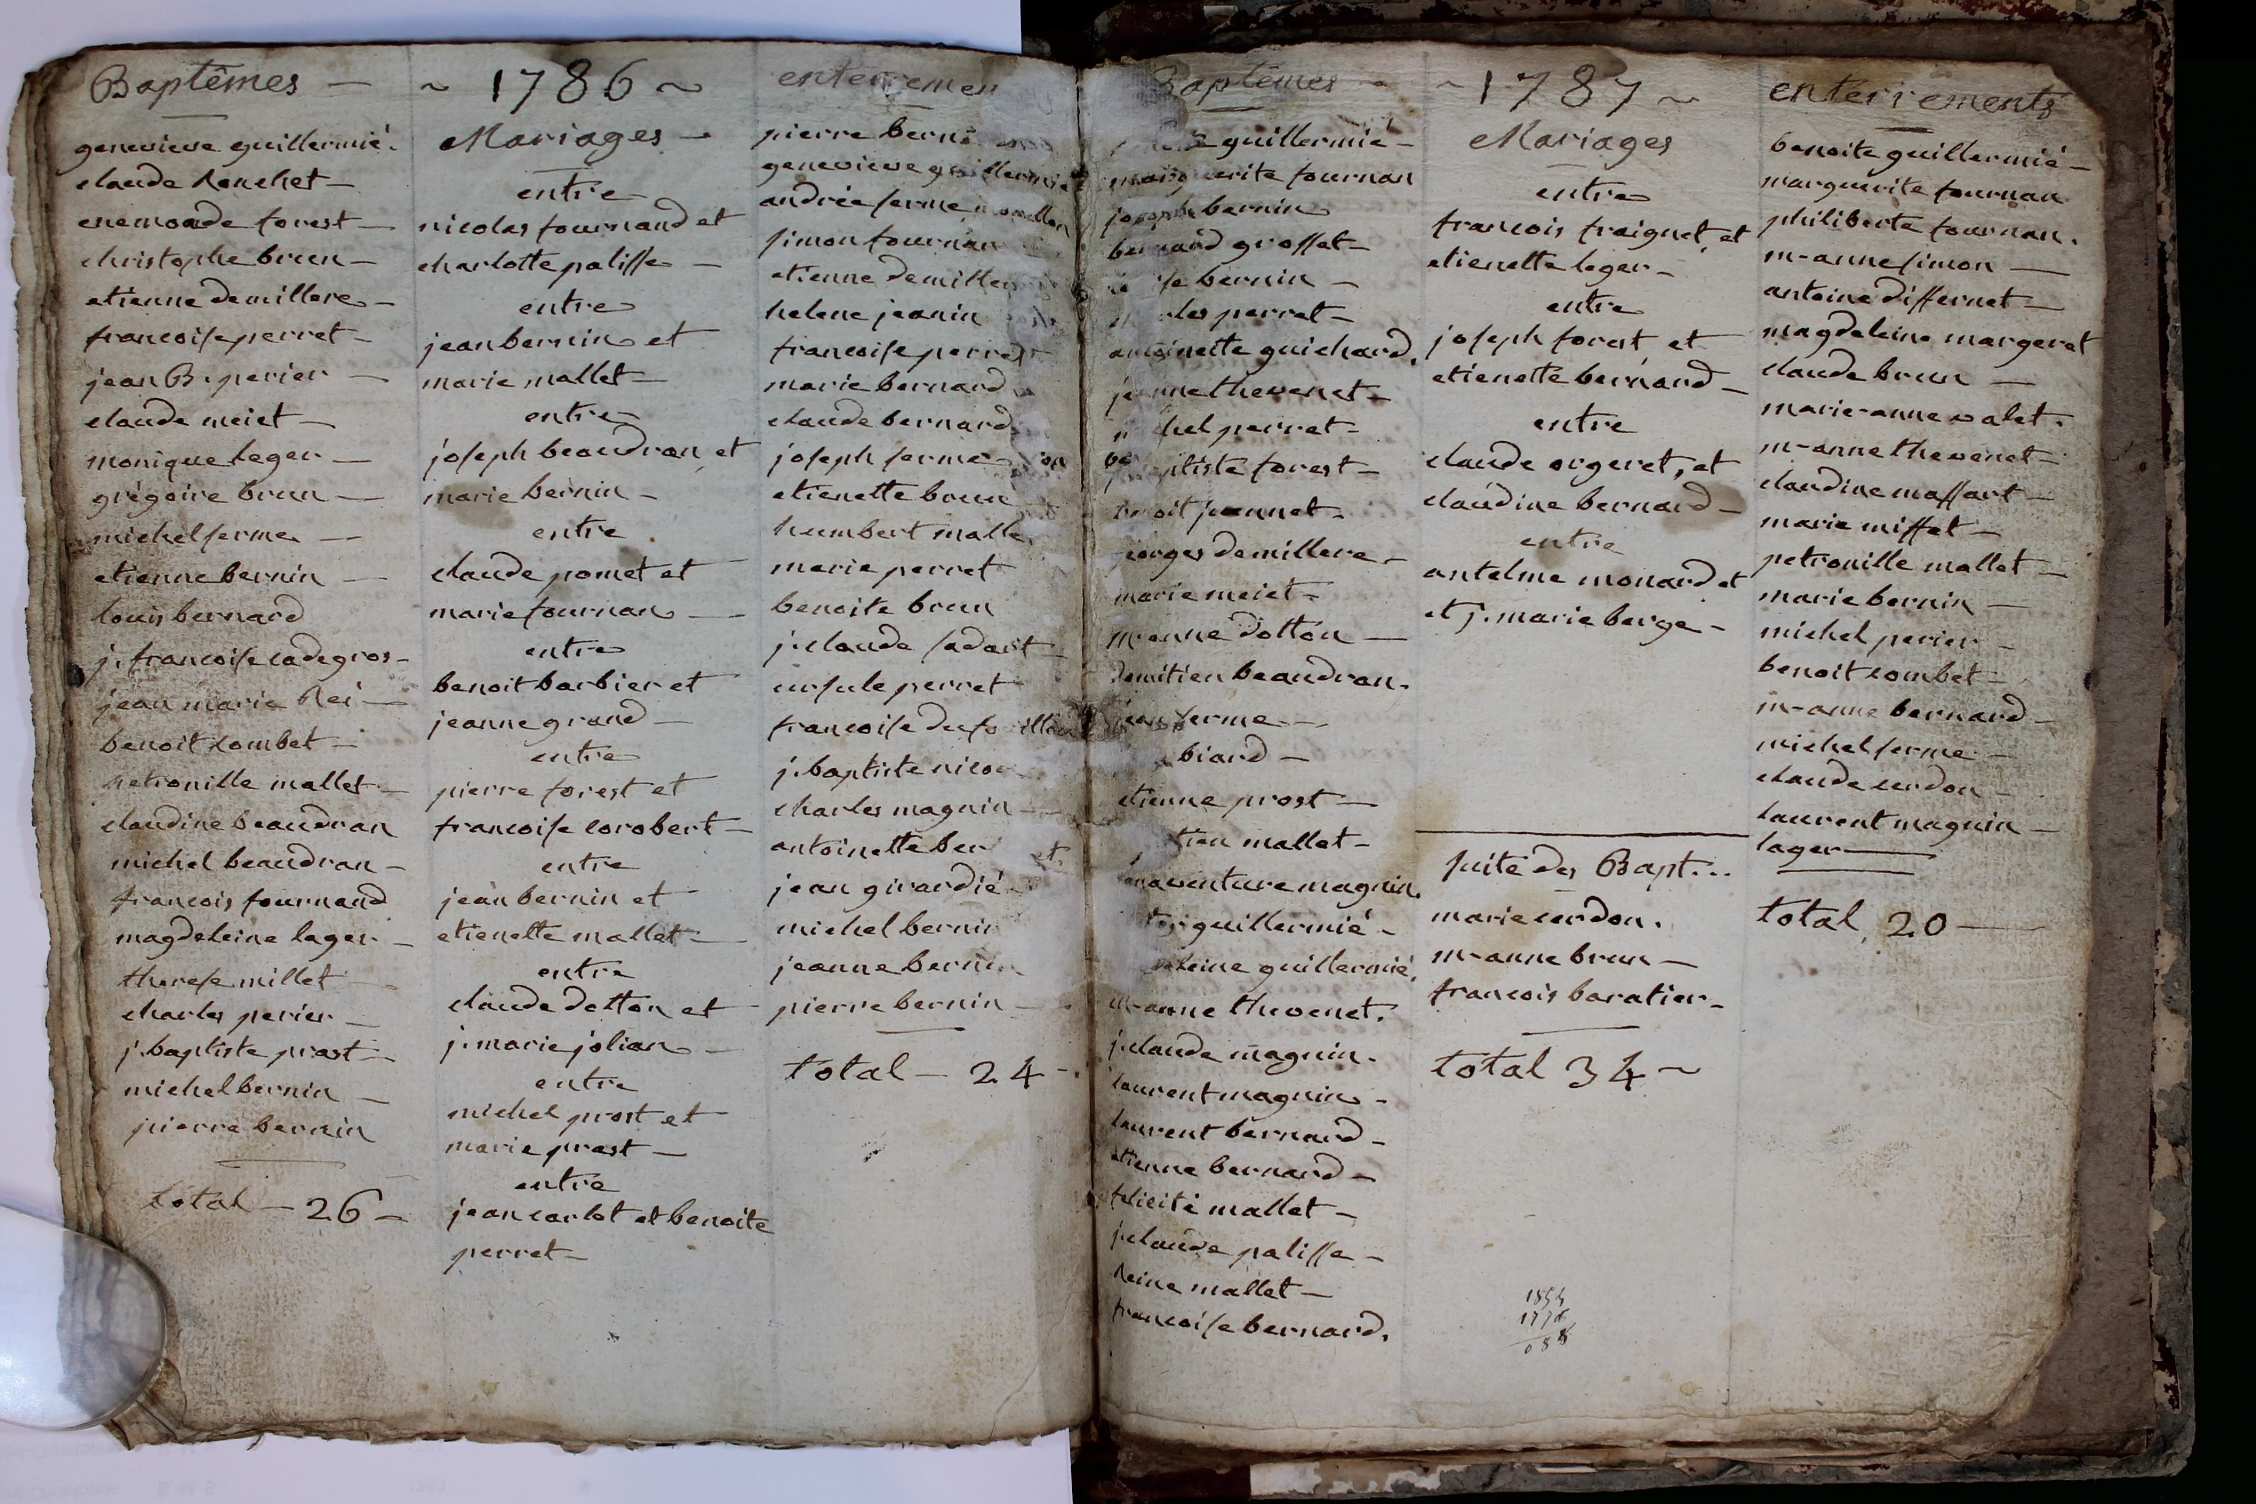 Baptêmes —
genevieve guillermié.
claude Renchet —
enemonde forest —
christophe brun —
etienne demillere —
francoise perret —
jean B. perier —
claude meiet —
monique leger —
grégoire brun —
michel ferme —
etienne bernin —
louis bernard
j. francoise cadegros —
jean marie Rei —
benoit combet —
petronille mallet —
claudine beaudran
michel beaudran —
francois fournand
magdeleine leger —
therese millet —
charles perier —
j. baptiste prost —
michel bernin —
pierre bernin
total — 26 —
~ 1786 ~
Mariages —
entre
nicolas fournand et
charlotte palisse —
entre
jean bernin et
marie mallet —
entre
joseph beaudran et
marie bernin —
entre
claude pomet et
marie fournan —
entre
benoit barbier et
jeanne grand —
entre
pierre forest et
francoise corobert —
entre
jean bernin et
etienette mallet —
entre
claude dotton et
j. marie jolian —
entre
michel prost et
marie prost —
entre
jean carlot et benoite
perret —
enterremen
pierre
genevieve guillermié
andrée ferme
simon fournan
etienne
helene jeanin
francoise perret
marie bernard
claude bernard
joseph ferme
etienette brun
humbert malle
marie perret
benoite brun
j. claude sadart
ursule perret
francoise
j. baptiste
charles magnin —
antoinette
jean girardié
michel bernin
jeanne bernin
pierre bernin —
total — 24 —
Baptêmes —
guillermié —
marguerite fournan
joseph bernin
bernard grosset —
bernin —
perret —
antoinette guichard.
jeanne thevenet —
perret —
forest —
benoit jeannet —
georges demillere —
marie meiet —
m-anne dotton —
domitien beaudran.
jean ferme —
biard —
etienne prost —
mallet —
bonaventure magnin.
guillermié —
guillermié.
m-anne thevenet.
j. claude magnin.
laurent magnin —
laurent bernard —
etienne bernard —
felicité mallet —
j. claude palisse —
Reine mallet —
francoise bernard.
~ 1787 ~
Mariages
entre
francois fraignet, et
etienette leger —
entre
joseph forest et
etienette bernard —
entre
claude orgeret, et
claudine bernard —
entre
antelme monard et
et j. marie berge —
suite des Bapt...
marie cerdon.
m-anne brun —
francois baratier —
total 34 ~
1854
enterrements
benoite guillermié —
marguerite fournan
philiberte fournan.
m-anne simon —
antoine differnet —
magdeleine margeret
claude brun —
marie-anne valet.
m-anne thevenet —
claudine massart —
marie miffet —
petronille mallet —
marie bernin —
michel perier —
benoit combet —
m-anne bernard —
michel ferme —
claude cerdon —
laurent magnin —
leger —
total 20 —